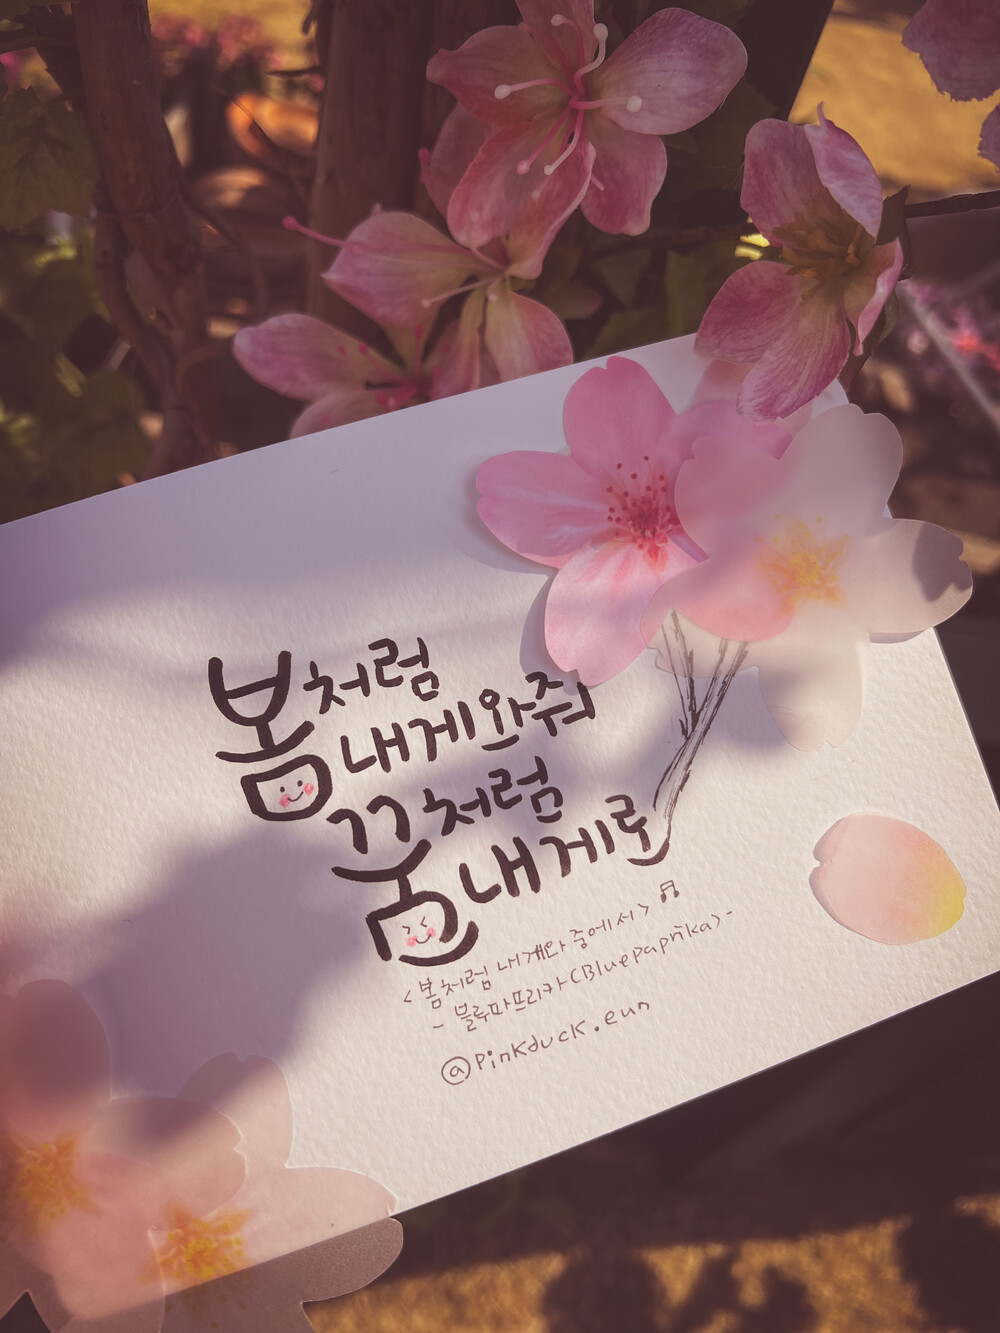 봄처럼
내게와줘
꿈처럼
내게로
<봄처럼 내게와 중에서>
- 블루파프리카(Bluepaprika) -
@pinkduck.eun